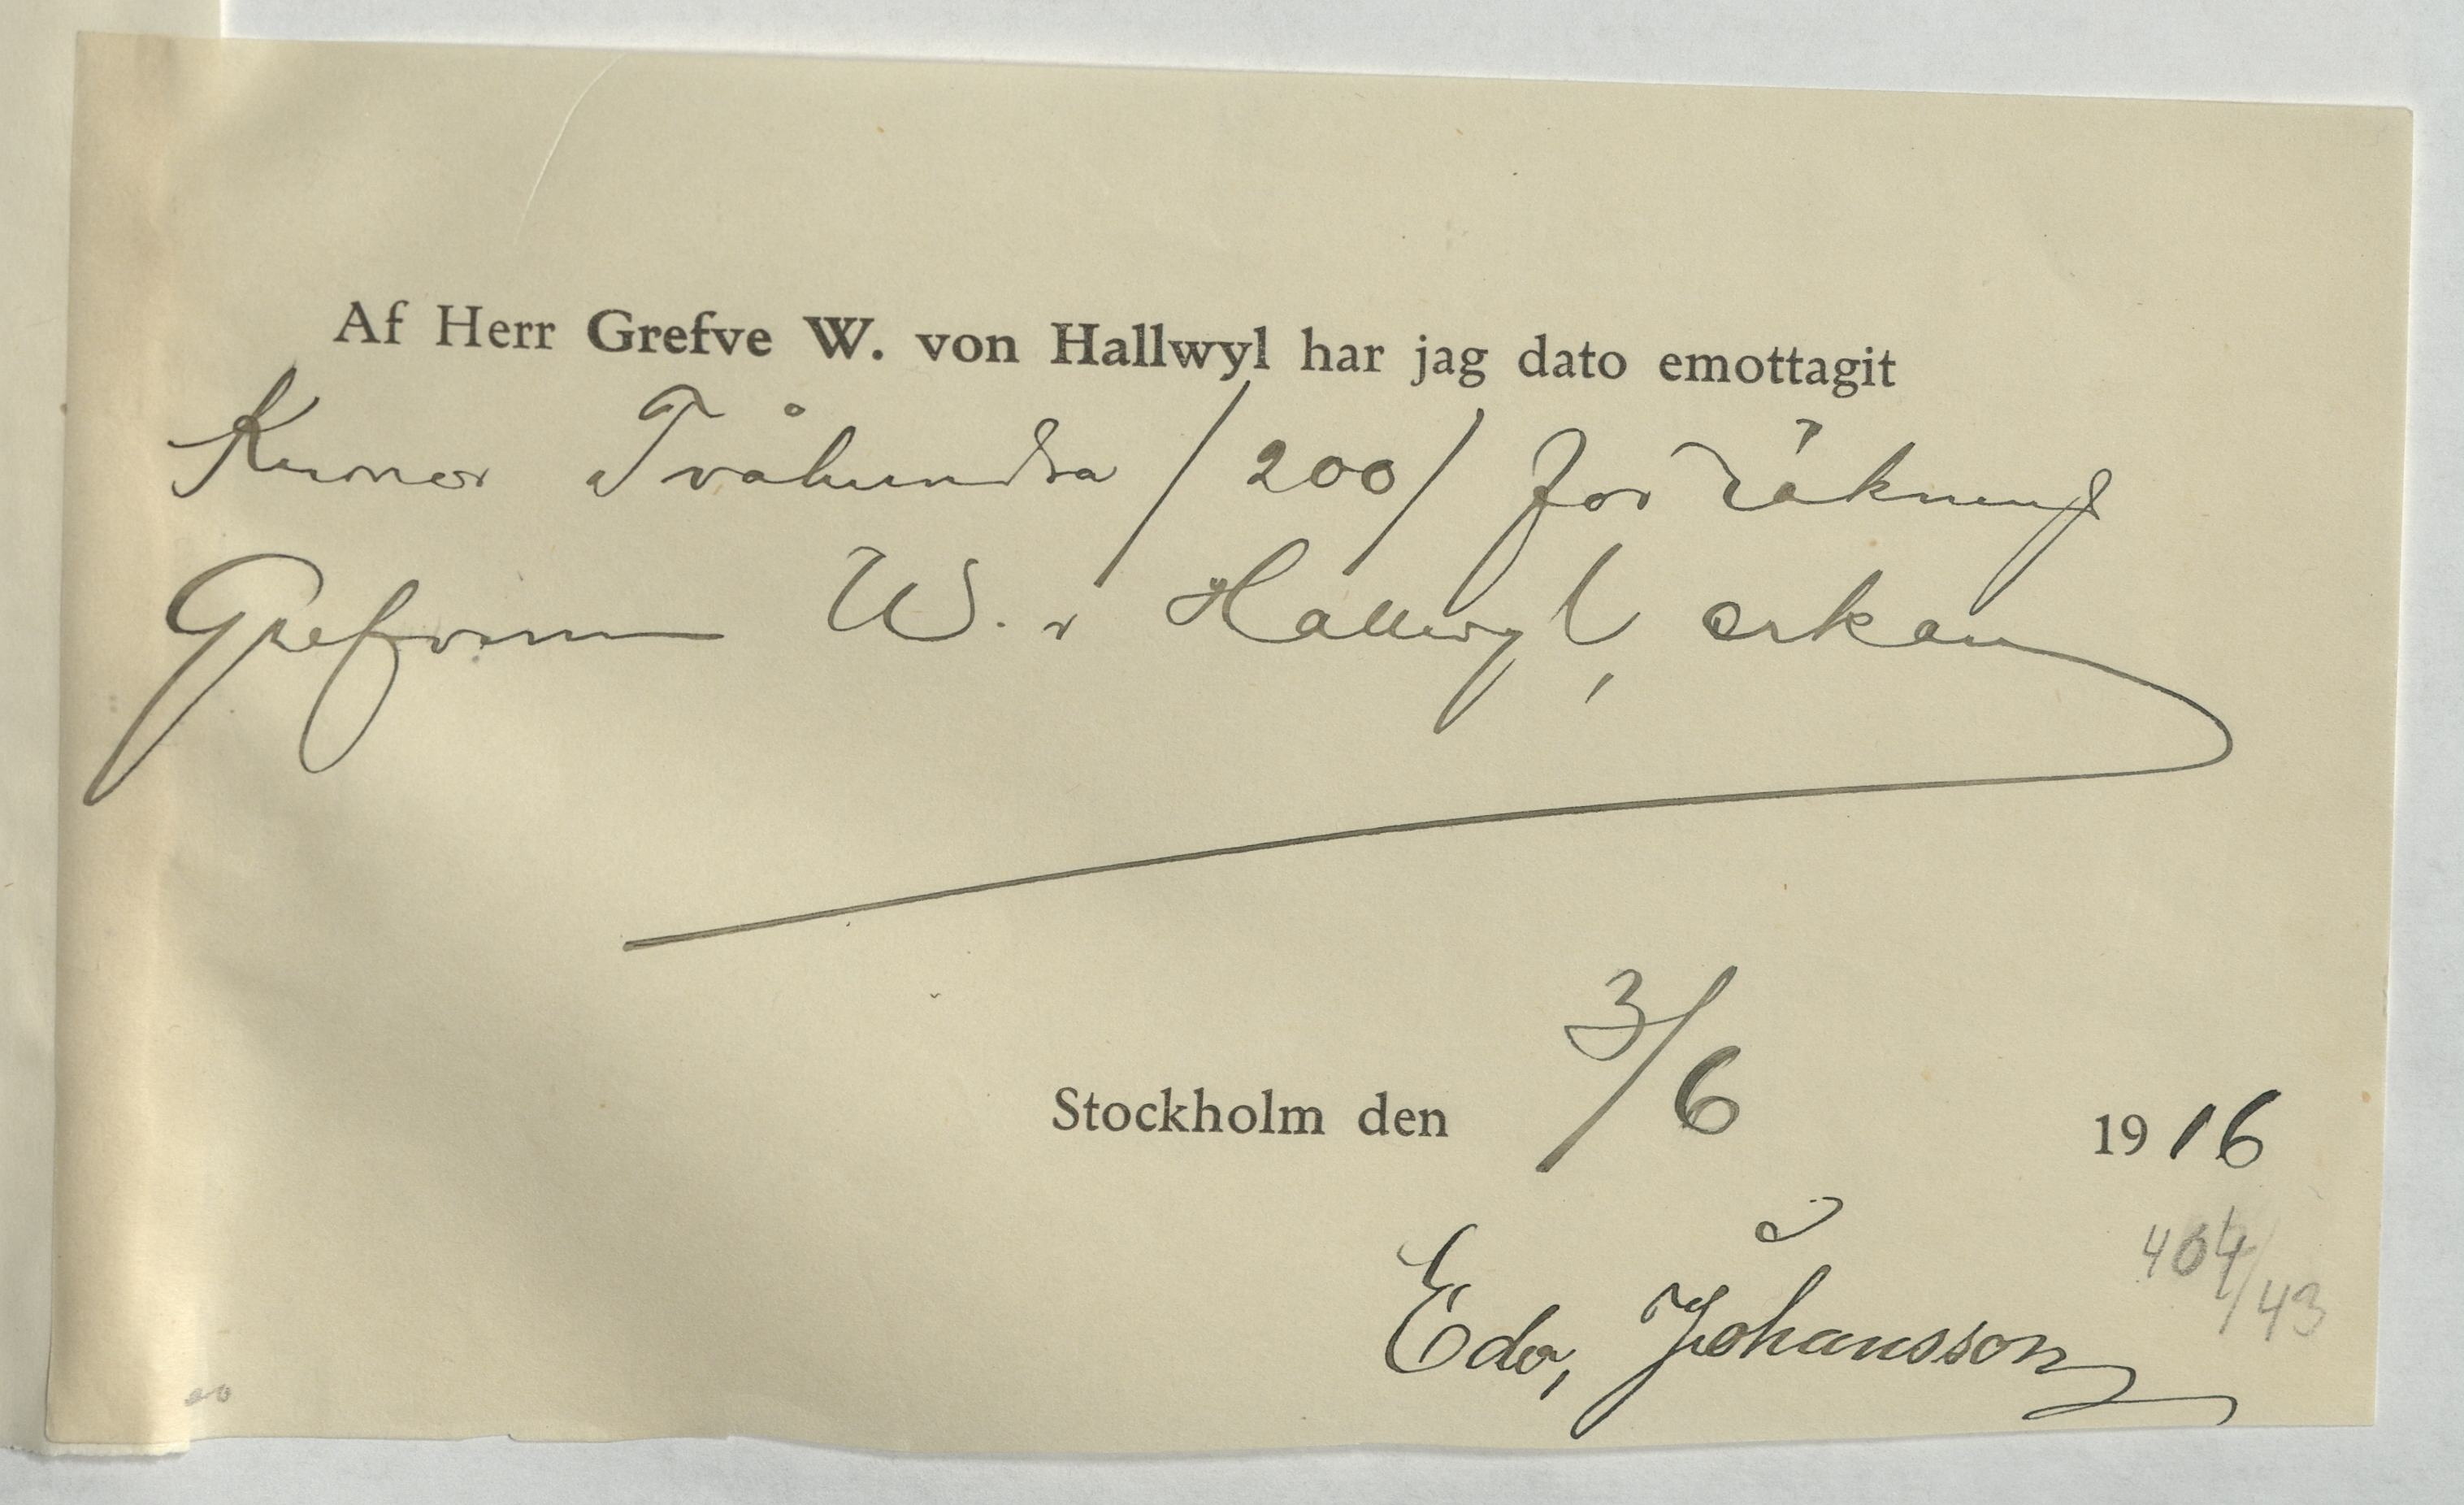 Af Herr Grefve W. von Hallwyl har jag dato emottagit
Kronor Tvåhundra /200/ för räkning
Grefvinnan W. v Hallwyl, erkän
Stockholm den 3/6 1916
Edv, Johansson
464/43